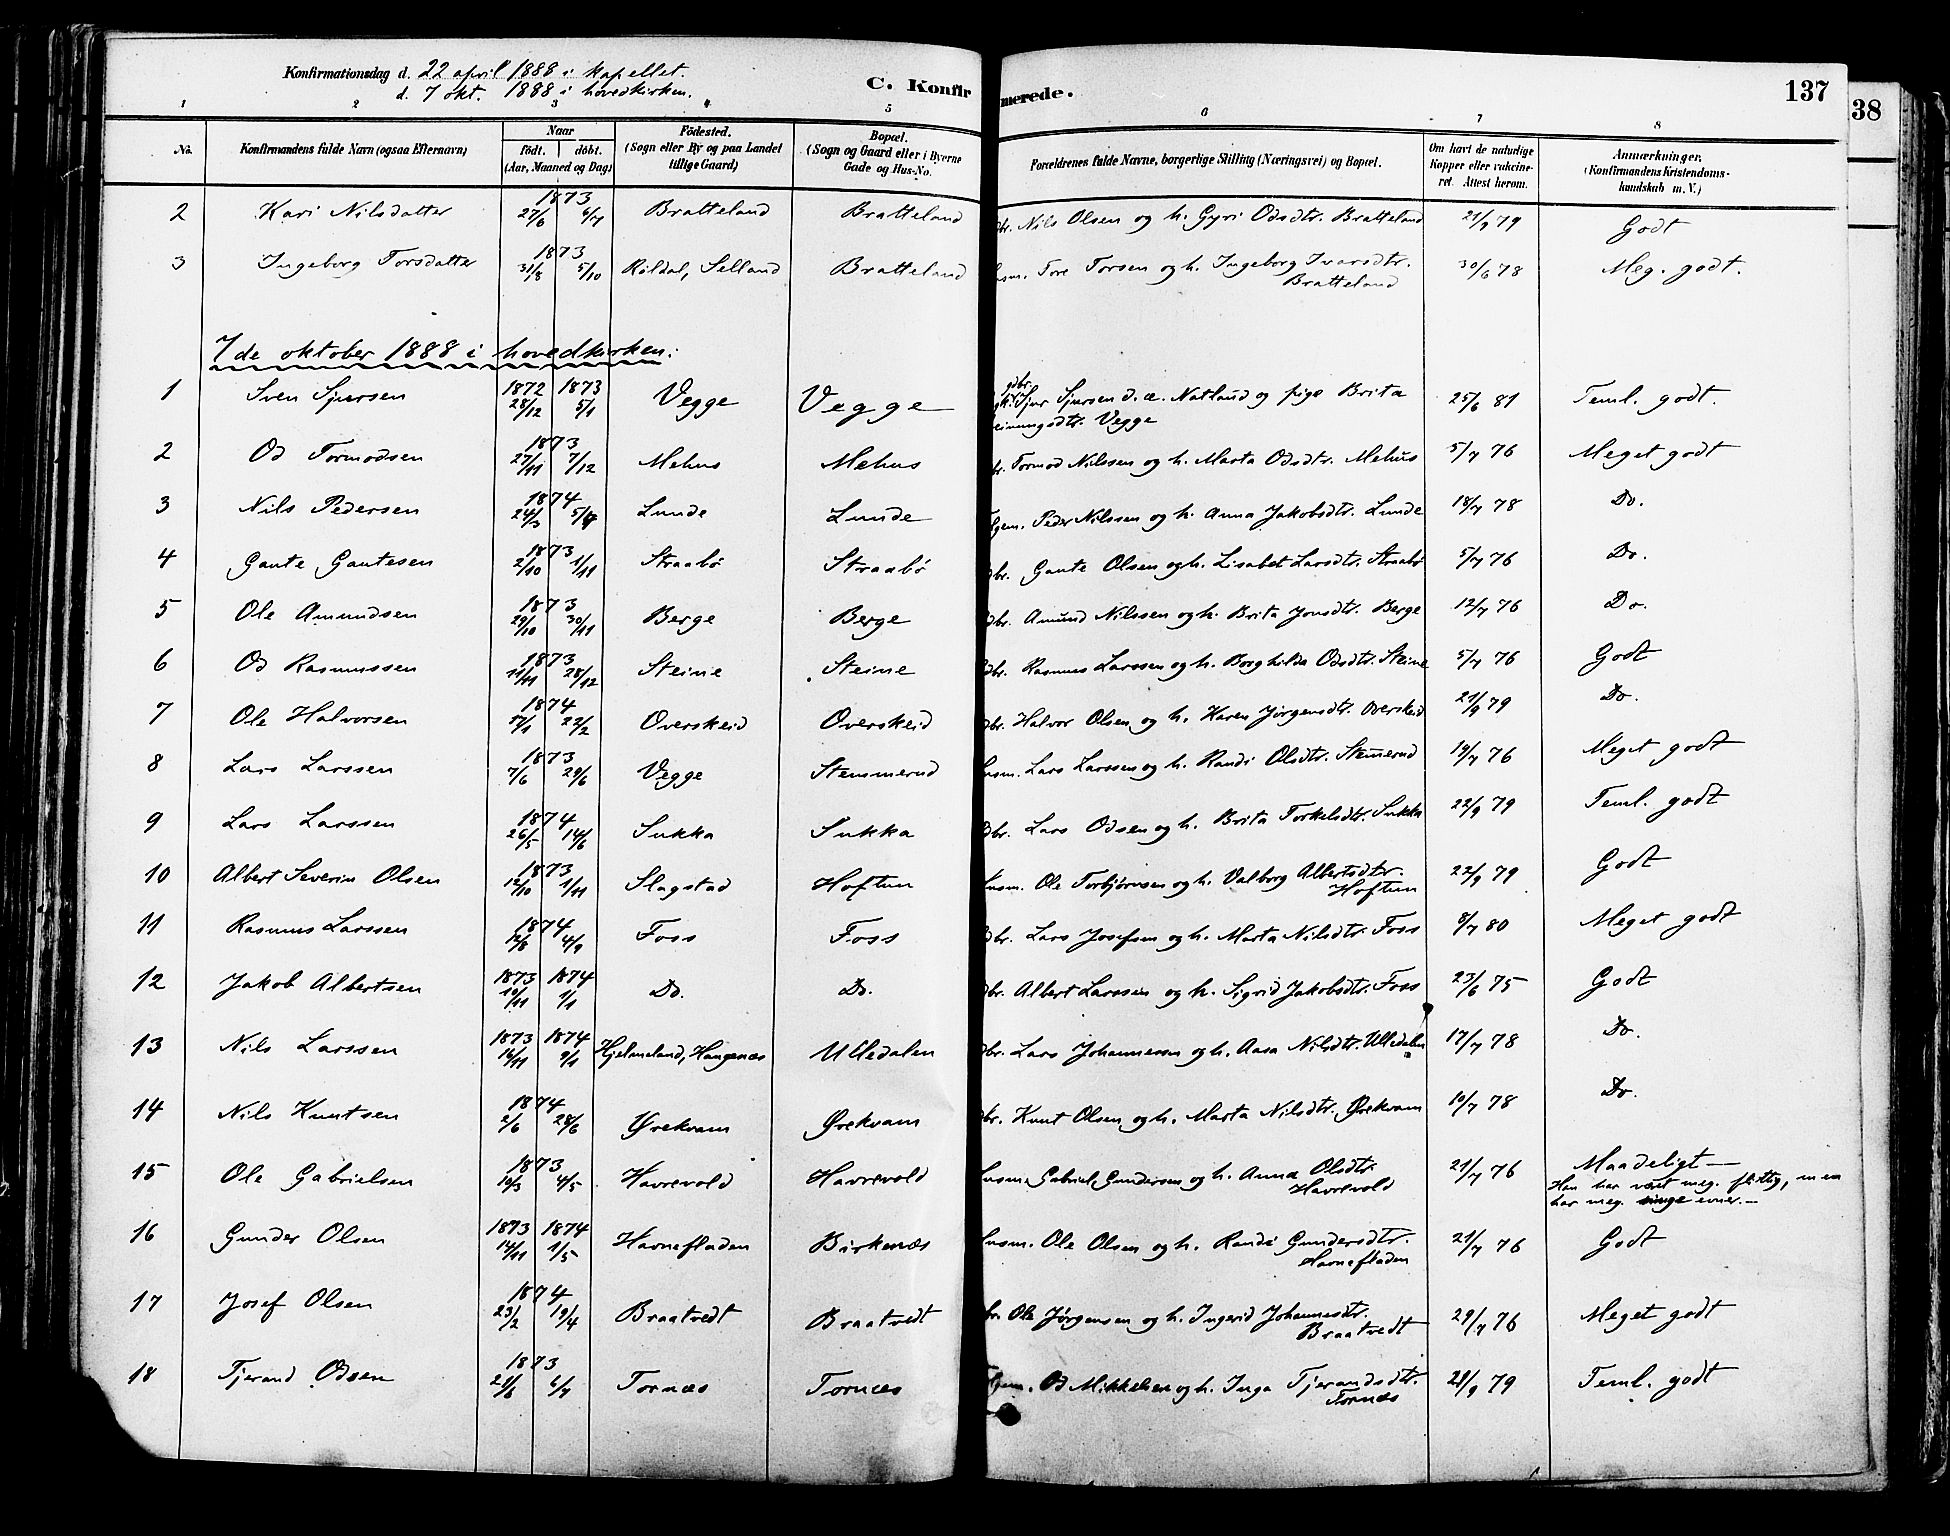 Konfirmationsdag d. 22 april 1888 i kapellet.
d. 7 okt. 1888 i hovedkirken.
C. Konfirmerede.
137
38
1 2 3 4 5 6 7 8
No. Konfirmandens fulde Navn (ogsaa Efternavn) Naar født. døbt. (Aar, Maaned og Dag) Fødested. (Sogn eller By og paa Landet tillige Gaard) Bopæl. (Sogn og Gaard eller i Byerne Gade og Hus-No. Forældrenes fulde Navne, borgerlige Stilling (Næringsvei) og Bopæl. Om havt de naturlige Kopper eller vaccineret. Attest herom. Anmærkninger. (Konfirmandens Kristendomskundskab m. V.)
2 Kari Nilsdatter 1873 27/6 6/7 Bratteland Bratteland br. Nils Olsen og h. Gyri Odsdtr. Bratteland 21/9 79 Godt
3 Ingeborg Torsdatter 1873 31/8 5/10 Røldal, Selland Bratteland usm. Tore Torsen og h. Ingeborg Ivarsdtr. Bratteland 30/6 78 Meg. godt.
7de oktober 1888 i hovedkirken:
1 Sven Sjursen 1872 28/12 1873 5/1 Vegge Vegge gdbr. Sjur Sjursen d. æ. Natland og pige Brita Vegge 25/6 81 Teml. godt.
2 Od Tormodsen 1873 27/11 7/12 Mehus Mehus br. Tormod Nilssen og h. Marta Odsdtr. Mehus 5/7 76 Meget godt
3 Nils Pedersen 1874 24/3 5/4 Lunde Lunde Peder Nilssen og h. Anna Jakobsdtr. Lunde 18/7 78 Do.
4 Gaute Gautesen 1873 2/10 1/11 Straabø Straabø dbr. Gaute Olsen og h. Lisabet Larsdtr. Straabø 5/7 76 Do.
5 Ole Amundsen 1873 29/10 30/11 Berge Berge dbr. Amund Nilssen og h. Brita Jonsdtr. Berge 12/7 76 Do.
6 Od Rasmussen 1873 11/11 28/12 Steine Steine dbr. Rasmus Larssen og h. Borghilda Odsdtr. Steine 5/7 76 Godt
7 Ole Halvorsen 1874 17/1 22/2 Overskeid Overskeid dbr. Halvor Olsen og h. Karen Jørgensdtr. Overskeid 21/9 79 Do.
8 Lars Larssen 1873 7/6 29/6 Vegge Stemmerud usm. Lars Larssen og h. Randi Olsdtr. Stemmerud 19/7 76 Meget godt
9 Lars Larssen 1874 26/5 14/6 Sukka Sukka dbr. Lars Odsen og h. Brita Torkelsdtr. Sukka 22/9 79 Teml. godt
10 Albert Severin Olsen 1873 12/10 1/11 Slagstad Hoftun usm. Ole Torbjørnsen og h. Valborg Albertsdtr. Hoftun 22/9 79 Godt
11 Rasmus Larssen 1874 12/8 4/9 Foss Foss dbr. Lars Josefsen og h. Marta Nilsdtr. Foss 8/7 80 Meget godt
12 Jakob Albertsen 1873 10/11 1874 1/1 Do. Do. dbr. Albert Larssen og h. Sigrid Jakobsdtr. Foss 23/6 75 Godt
13 Nils Larssen 1873 16/11 1874 9/1 Hjelmeland, Haugenæs Ulledalen dbr. Lars Johannessen og h. Aasa Nilsdtr. Ulledalen 17/7 78 Do.
14 Nils Knutsen 1874 2/6 28/6 Ørekvam Ørekvam dbr. Knut Olsen og h. Marta Nilsdtr. Ørekvam 10/7 78 Do.
15 Ole Gabrielsen 1873 10/3 4/5 Havrevold Havrevold usm. Gabriel Gundersen og h. Anna Olsdtr. Havrevold 21/7 76 Maadeligt —
Han har været meg. flittig, men
har meg. ringe evner. —
16 Gunder Olsen 1873 14/11 1874 1/5 Havnefladen Birkenæs usm. Ole Olsen og h. Randi Gundersdtr. Havnefladen 21/7 76 Godt
17 Josef Olsen 1874 23/2 19/4 Braatvedt Braatvedt br. Ole Jørgensen og h. Ingerid Johannesdtr. Braatvedt 29/7 76 Meget godt
18 Tjerand Odsen 1873 21/6 6/7 Tornæs Tornæs Od Mikkelsen og h. Inga Tjerandsdtr. Tornæs 21/9 79 Teml. godt